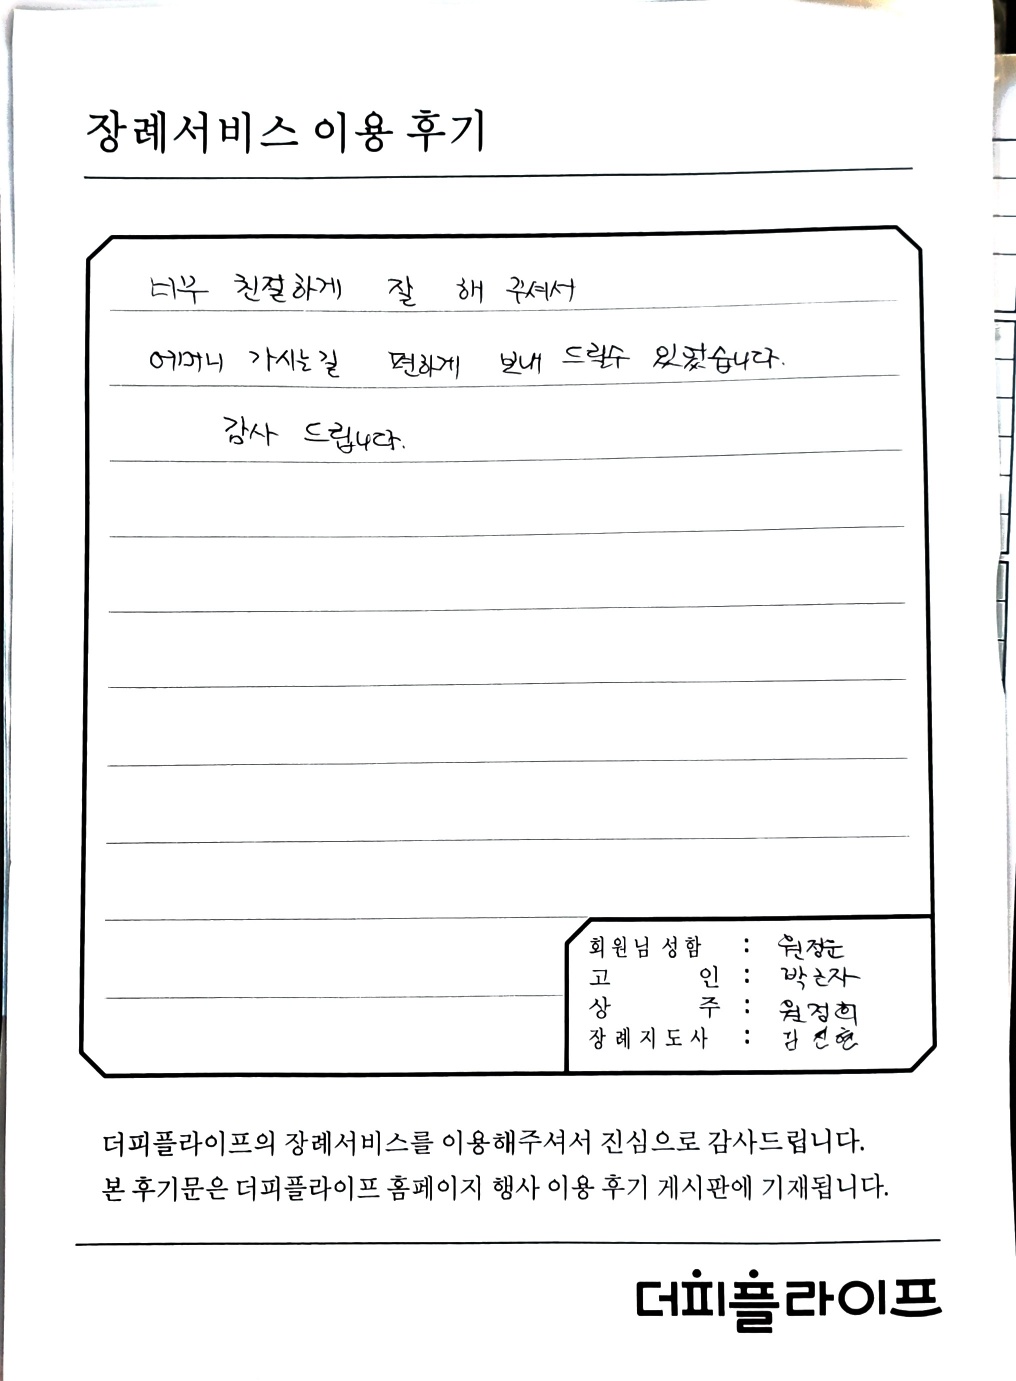 장례서비스 이용 후기
너무 친절하게 잘 해 주셔서
어머니 가시는길 편하게 보내 드릴수 있었습니다.
감사 드립니다.
회원님 성함 : 원정운
고 인 : 박근자
상 주 : 원정희
장례지도사 : 김진현
더피플라이프의 장례서비스를 이용해주셔서 진심으로 감사드립니다.
본 후기문은 더피플라이프 홈페이지 행사 이용 후기 게시판에 기재됩니다.
더피플라이프